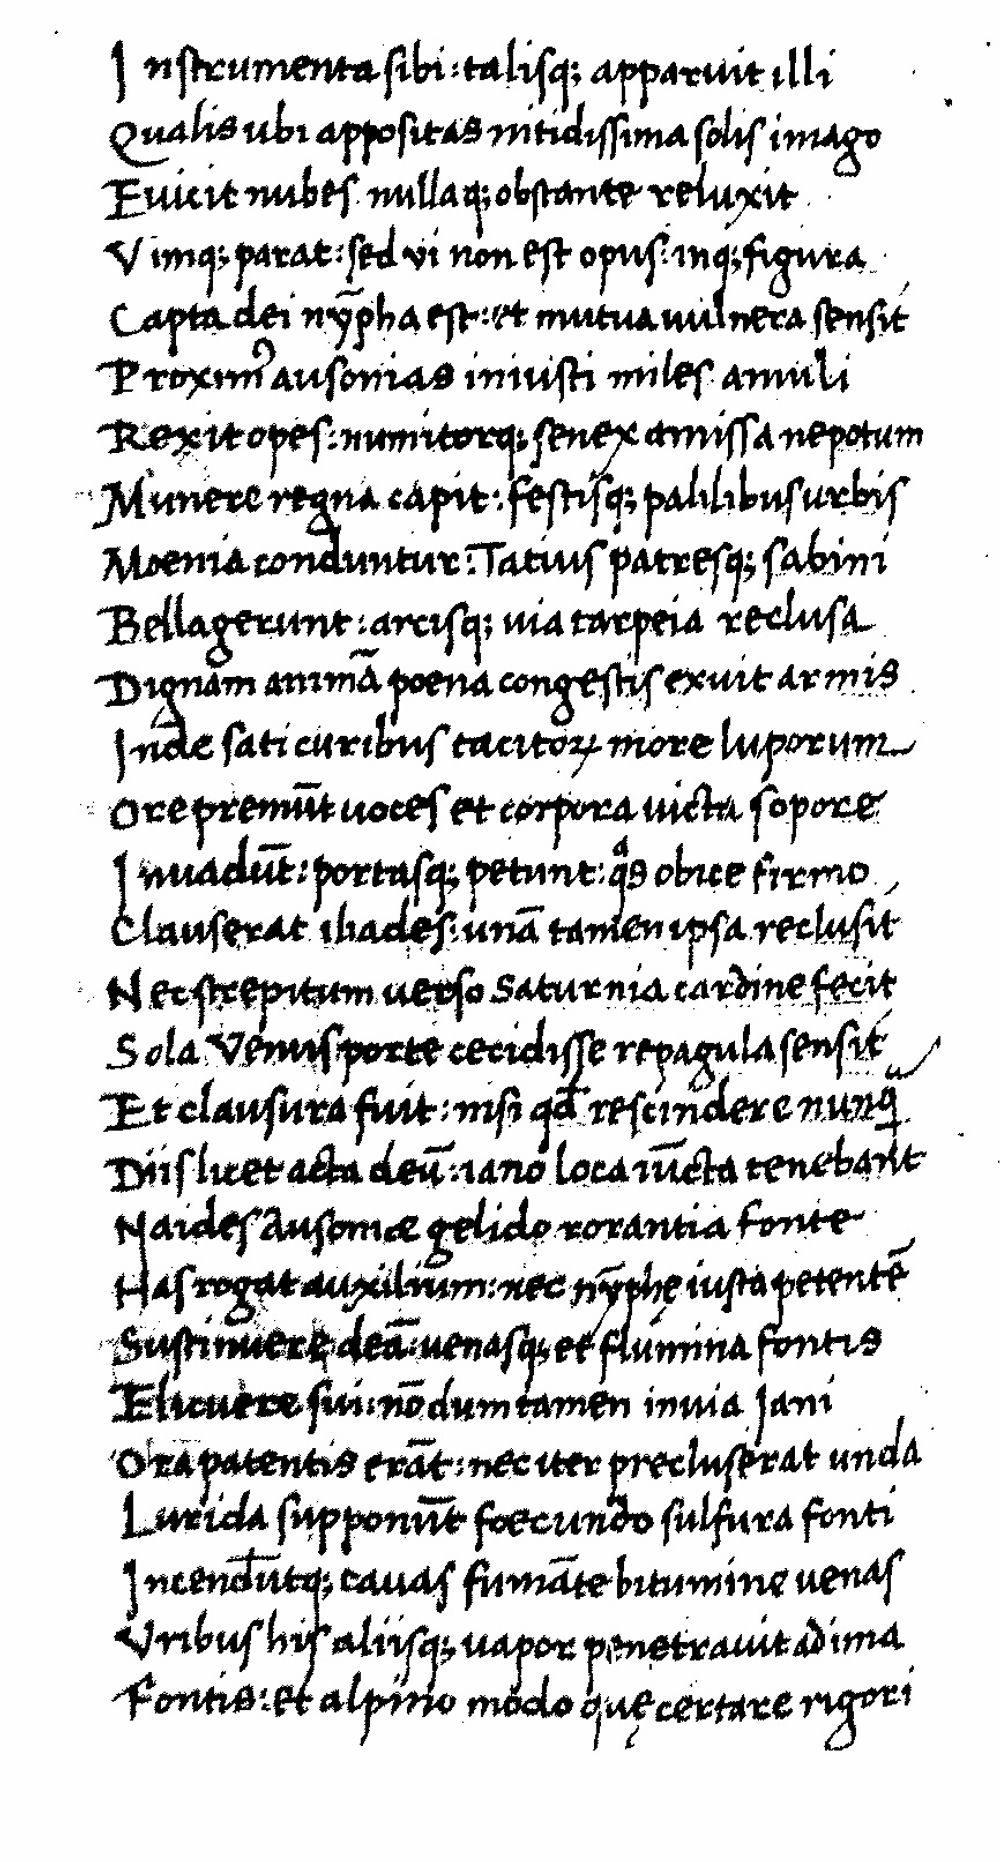 Instrumenta sibi: talisq; apparuit illi
Qualis ubi appositas nitidissima solis imago
Euicit nubes nullaq; obstante reluxit
Vimq; parat: sed vi non est opus: inq; figura
Capta dei nȳpha est: et mutua uulnera sensit
Proximꝰ ausonias iniusti miles amuli
Rexit opes: numitorq; senex amissa nepotum
Munere regna capit: festisq; palilibus urbis
Moenia conduntur: Tatius patresq; sabini
Bella gerunt: arcisq; uia tarpeia reclusa
Dignam animā poena congestis exuit armis
Inde sati curibus tacitoꝝ more luporum
Ore premūt uoces et corpora uicta sopore
Inuadūt: portasq; petunt: qᵃs obice firmo
Clauserat iliades: unā tamen ipsa reclusit
Nec strepitum uerso Saturnia cardine fecit
Sola Venus porte cecidisse repagula sensit
Et clausura fuit: nisi qđ rescindere nunꝙ
Diis licet acta deū: iano loca iūcta tenebant
Naides Ausoniæ gelido rorantia fonte
Has rogat auxilium: nec nȳphe iusta petentē
Sustinuere deā: uenasq; et flumina fontis
Elicuere sui: nōdum tamen inuia Jani
Ora patentis erāt: nec iter precluserat unda
Lurida supponūt foecundo sulfura fonti
Incendūtq; cauas fumāte bitumine uenas
Viribus his aliisq; uapor penetrauit ad ima
Fontis: et alpino modo quę certare rigori